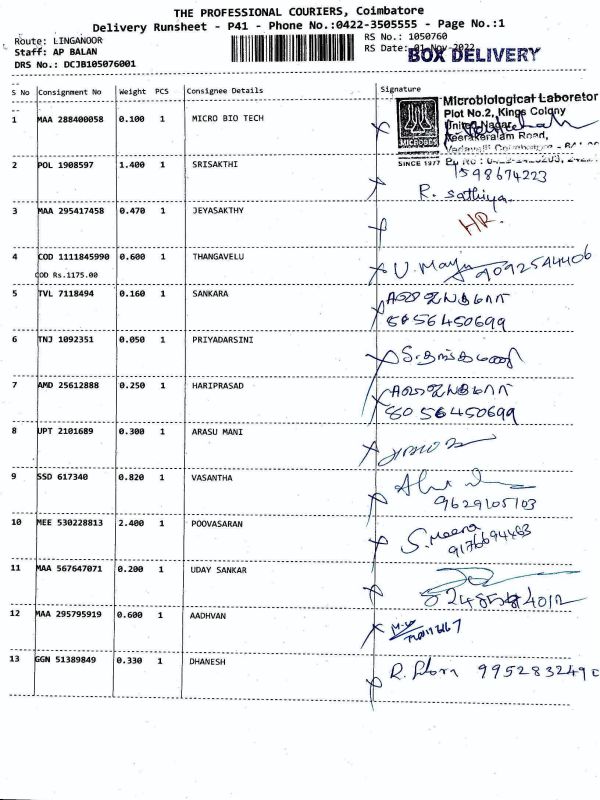 THE PROFESSIONAL COURIERS, Coimbatore
Delivery Runsheet - P41 - Phone No.:0422-3505555 - Page No.:1
Route: LINGANOOR
Staff: AP BALAN
DRS No.: DCJB105076001
RS No.: 1050760
RS Date: 01-Nov-2022
BOX DELIVERY
S No Consignment No Weight PCS Consignee Details Signature
1 MAA 288400058 0.100 1 MICRO BIO TECH
MICROBES
SINCE 1977
Microbiological Laborator
Plot No.2, Kings Colony
United Nagar,
Veerakeralam Road,
2 POL 1908597 1.400 1 SRISAKTHI
1598674223
R. Sathiya
3 MAA 295417458 0.470 1 JEYASAKTHY HR.
4 COD 1111845990 0.600 1 THANGAVELU 9092544406
COD Rs.1175.00
5 TVL 7118494 0.160 1 SANKARA
8056450699
6 TNJ 1092351 0.050 1 PRIYADARSINI
7 AMD 25612888 0.250 1 HARIPRASAD
8056450699
8 UPT 2101689 0.300 1 ARASU MANI
9 SSD 617340 0.820 1 VASANTHA
9629105103
10 MEE 530228813 2.400 1 POOVASARAN S. Meena
9176694463
11 MAA 567647071 0.200 1 UDAY SANKAR
12 MAA 295795919 0.600 1 AADHVAN
13 GGN 51389849 0.330 1 DHANESH 995283249